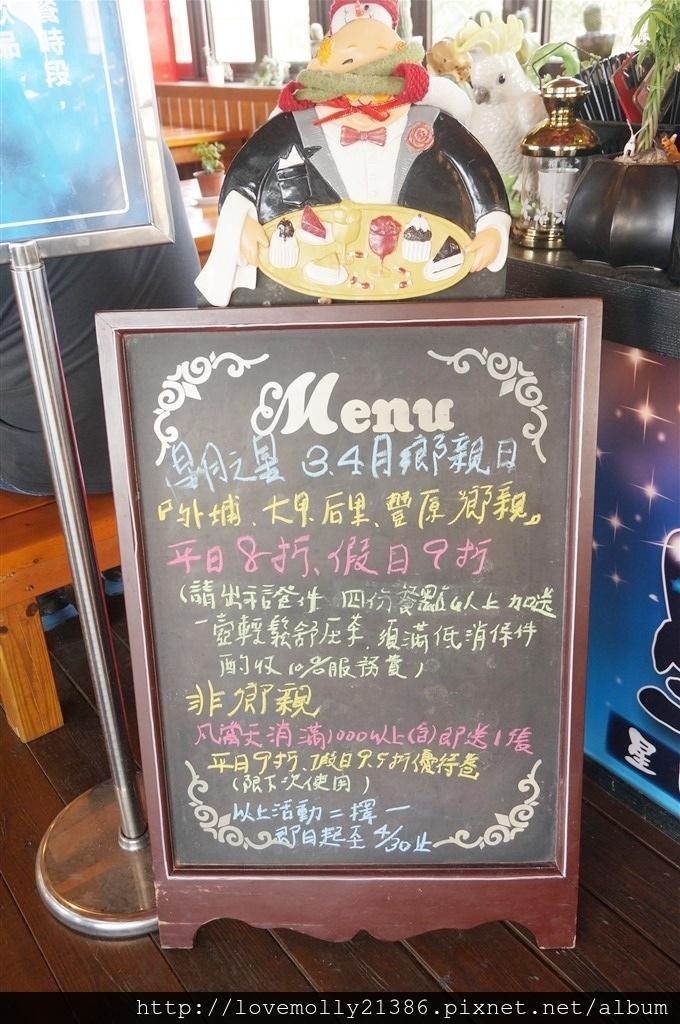 餐時段,
飲品
Menu
星月之星 3.4月鄉親日
『外埔、大甲、后里、豐原 鄉親』
平日8折、假日9折
(請出示證件 四份餐點以上 加送
一壺輕鬆舒压茶.須滿低消條件
酌收10%服務費)
非鄉親
凡當天消滿1000以上(含)即送1張
平日9折.假日9.5折優待卷
(限下次使用)
以上活動二擇一
即日起至4/30止
星
http://lovemolly21386.pixnet.net/album